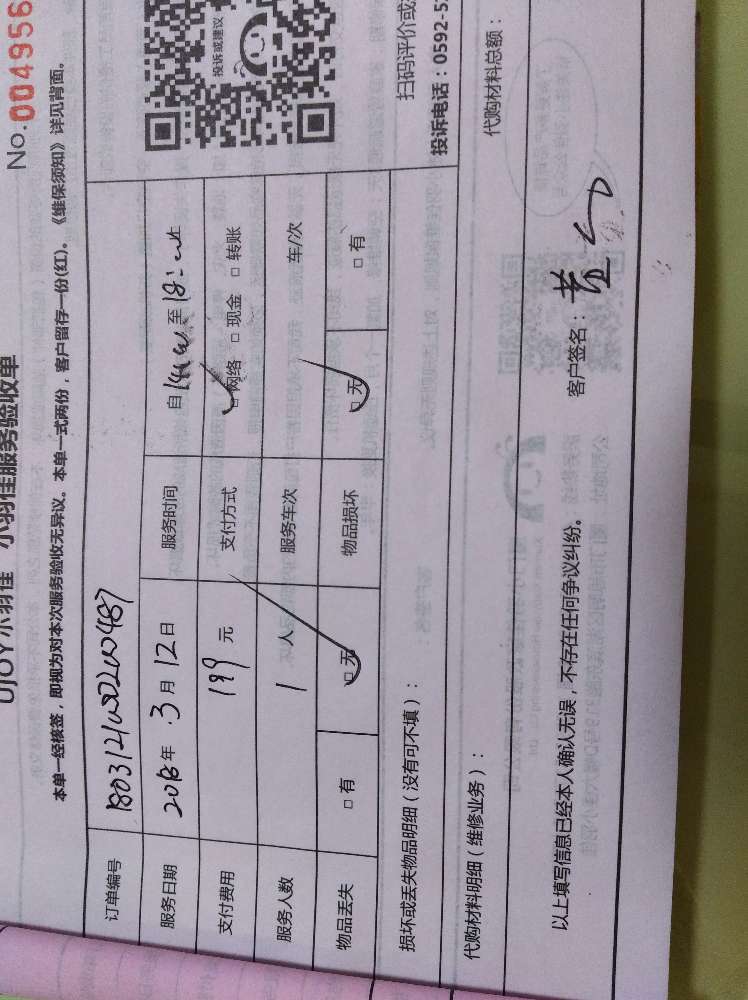 UJOY小羽佳 小羽佳服务验收单
No.004956
本单一经核签，即视为对本次服务验收无异议。本单一式两份，客户留存一份(红)。《维保须知》详见背面。
订单编号
服务日期 2018年 3月 12日 服务时间 自 至
支付费用 199 元 支付方式 网络 □ 现金 □ 转账
服务人数 1 人 服务车次 车/次
物品丢失 □ 有 □ 无 物品损坏 □ 无 □ 有
投诉或建议
扫码评价或
损坏或丢失物品明细（没有可不填）：
投诉电话：0592-5
代购材料明细（维修业务）：
代购材料总额：
以上填写信息已经本人确认无误，不存在任何争议纠纷。
客户签名：